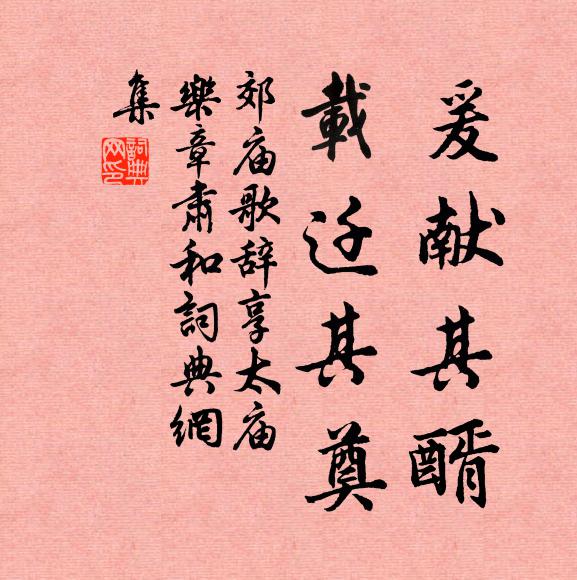 爰献其醑
載迁其奠
郊庙歌辞享太庙
樂章肅和詞典網
集
詞典
网印